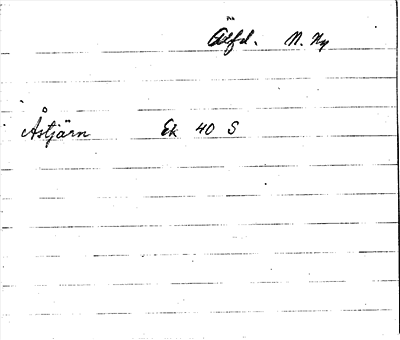 Älfd. N. Ny
Åstjärn Ek 40 S